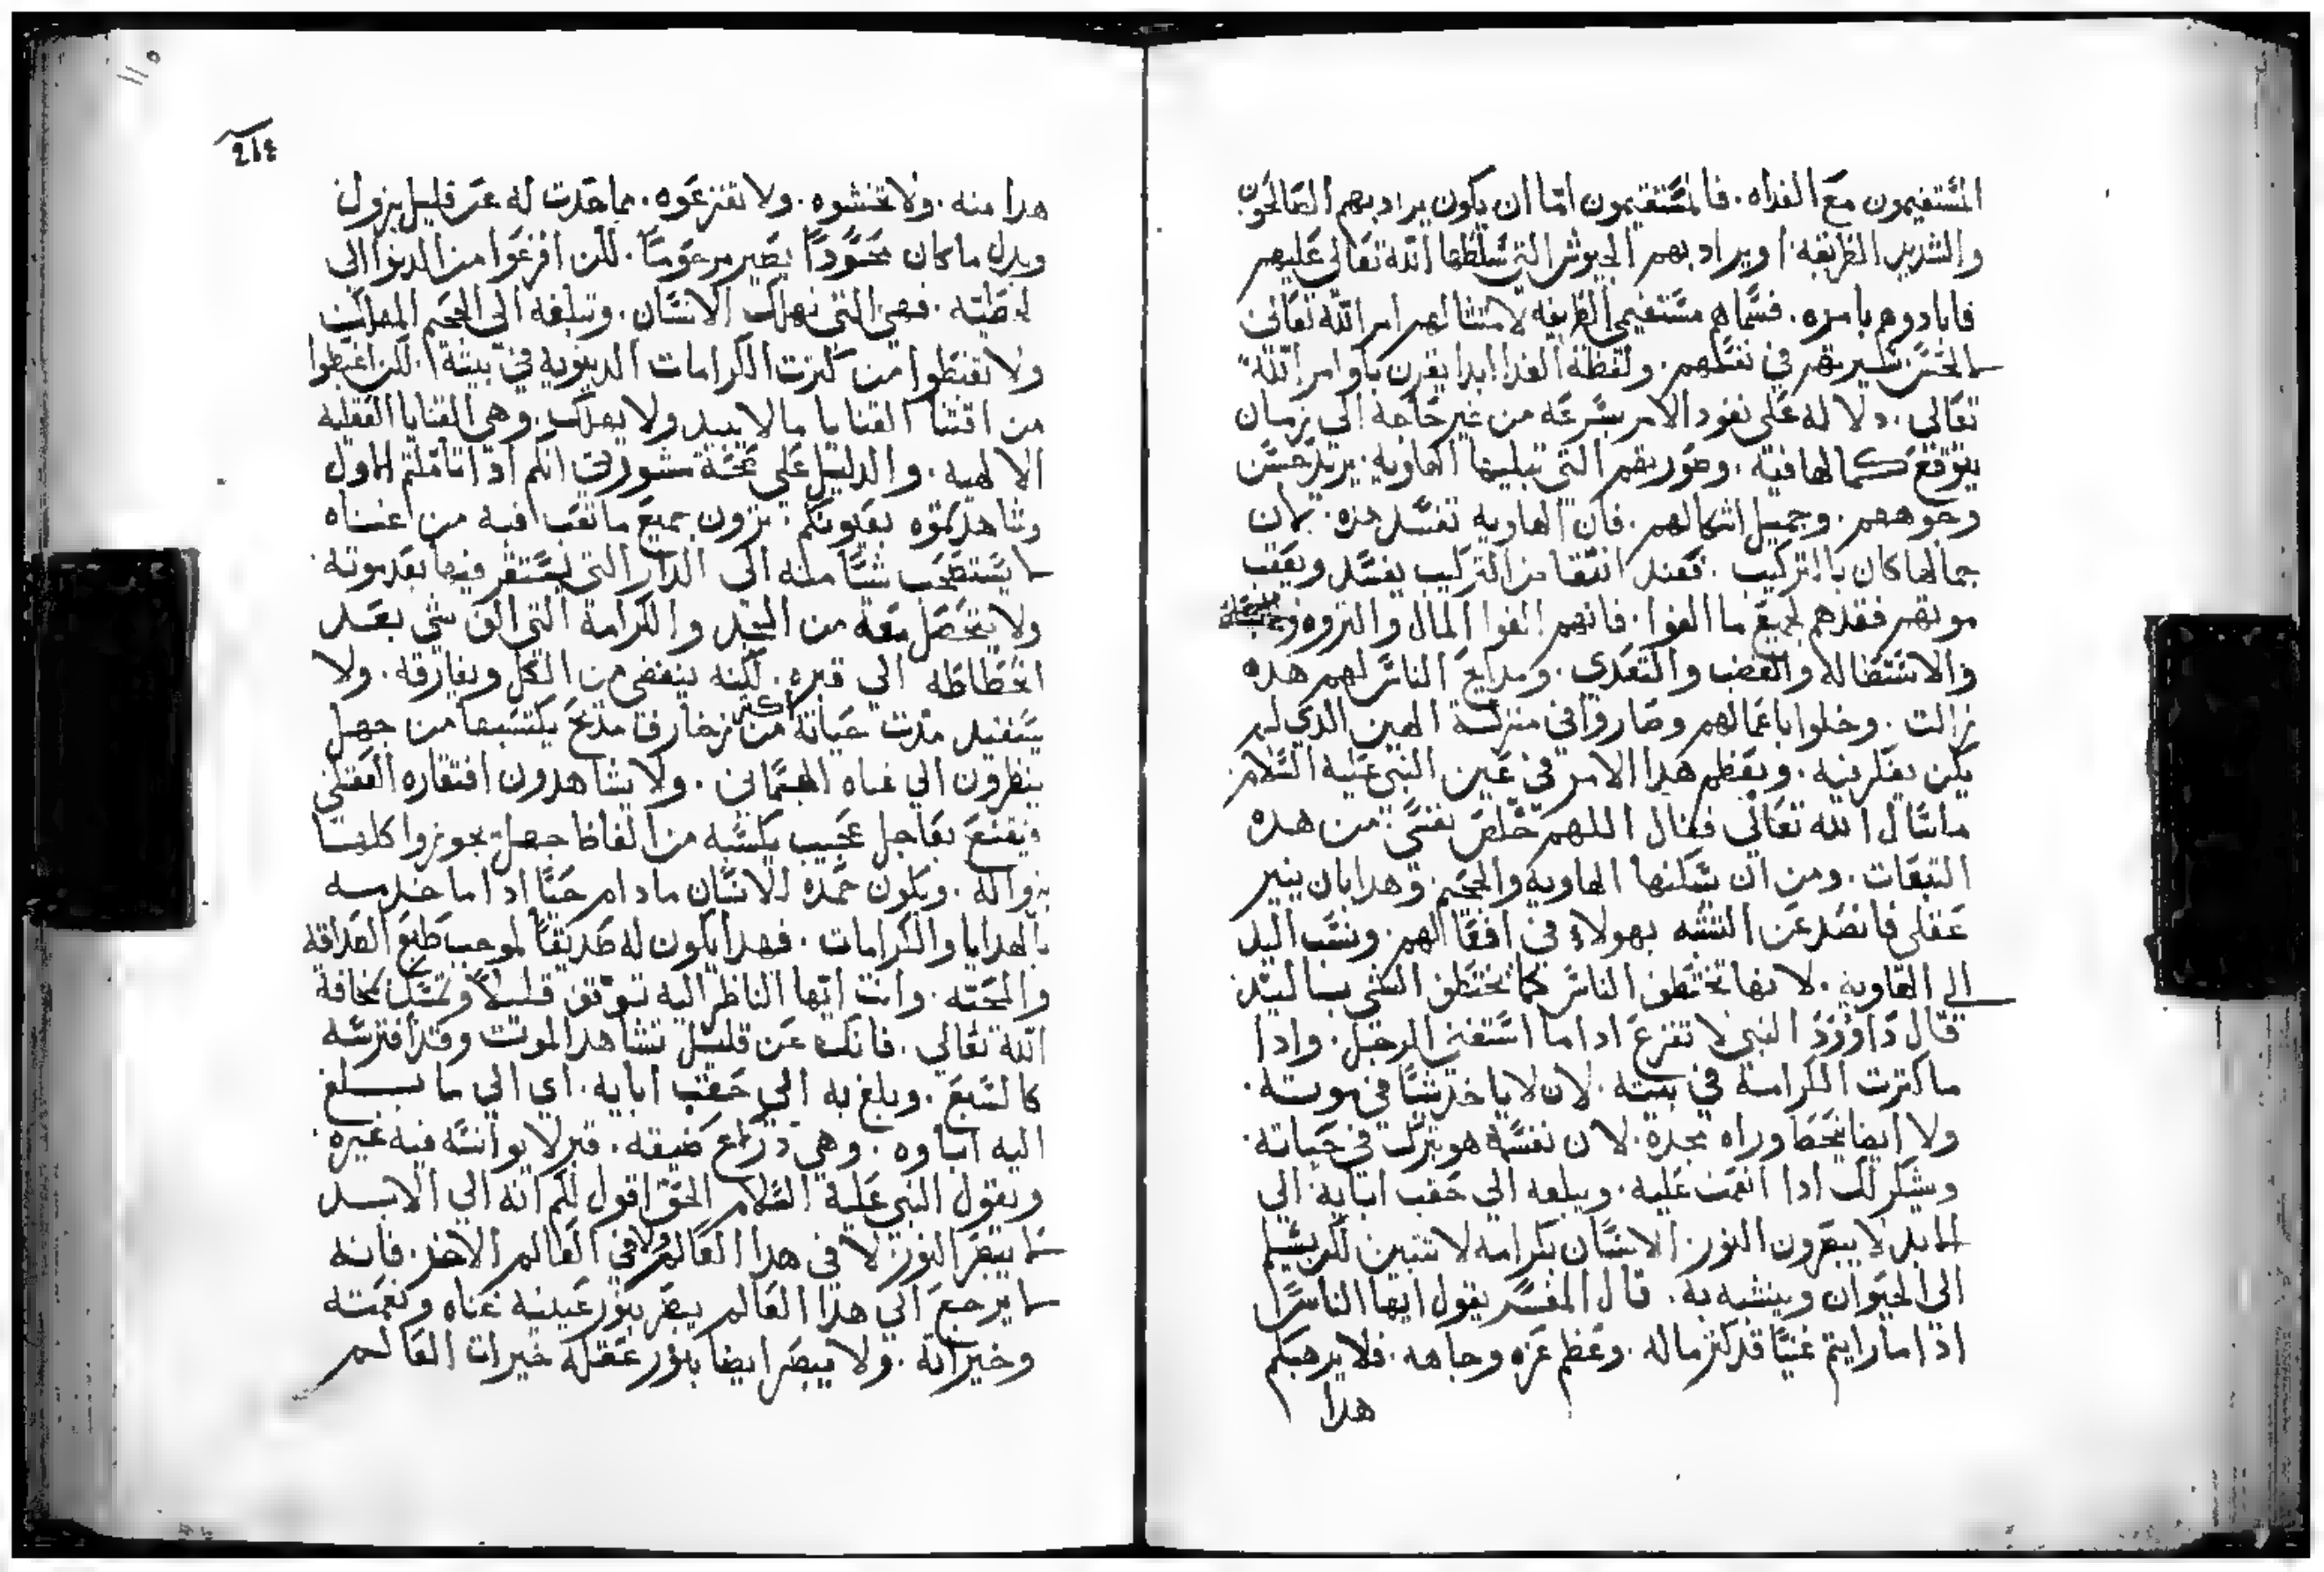 المستقيمون مع الغداه. فالمستقيمون اما ان يكون يراد بهم الصالحون
والشديدين الطريقه. او يراد بهم الجيوش التي سلطها الله تعالى عليهم
فابادوهم بامره. فسماهم مستقيمي الطريقه لامتثالهم امر الله تعالى
لا لحسن سيرتهم في نفسهم. ولفظة الغدا ابدا يقرن باوامر الله
تعالى. دلاله على نفود الامر بسرعه من غير حاجة الى زمان
يتوقع كمالها فيه. وصورتهم التي تبليها الهاويه. يريد حسن
وجوههم. وجميل اشكالهم. فان الهاويه تفسد هده. لان
جمالها كان بالتركيب. فعند انتقا من التركيب يفسد ويعقب
موتهم فقدهم لجميع ما الفوا. فانهم الفوا المال والثروه
والاستطاله والغضب والتعدى. ومدايح الناس لهم هده
زالت. وخلوا باعمالهم وصاروا في منزلة المهين الدي لم
يكن يفكر فيه. ويعظم هدا الامر في عين النبي عليه السلام
ماسال الله تعالى فقال اللهم خلص نفسى من هده
التبعات. ومن ان تسكنها الهاويه والجحيم. وهدا بان ينير
عقلى فانصد عن التشبه بهولاء في افعالهم. ونسب اليد
الى الهاويه. لانها تختطف الناس كما تختطف الشي بساليد
قال داوود النبي لا تفزع ادا ما استغنى الرجل. وادا
ما كثرت الكرامة في بيته. لان لا ياخد شيا في موته.
ولا ايضا يحط وراه مجده. لان نفسه هو يبرك في حياته.
ويشكر لك ادا انعمت عليه. ويبلغه الى حقب ابايه الى
الابد لا يبصرون النور. الانسان بكرامه لا تتبين لكن يسلم
الى الحيوان ويتشبه به. قال المفسر يقول ايها الناس
ادا ما رايتم غنيا قد كثر ماله. وعظم عزه وجاهه. فلا يرهبكم
هدا
214
هدا منه. ولا تخشوه. ولا تفزعوه. مما حدت له عن قليل يزول
وبدل ما كان محسودا يصير مرحوما. لكن افزعوا من الدنوا الى
لخطيه. فهي التي تهلك الانسان. وتبلغه الى الجحيم المهلك
ولا تغبطوا من كثرت الكرامات الدنيويه في بيته. لكن اغبطوا
من اقتنا القنايا مالا يبيد ولا يهلك. وهي القنايا العقليه
الالهيه. والدليل على صحة مشورتي انكم ادا تاملتم الاول
وشاهدتموه بعيونكم. ترون جميع ما تعب فيه من اغناه
لا يستصحب شيا منه الى الدار التي يستقر فيها بعد موته
ولا يتحصل معه من المجد والكرامة التي الف شي بعد
انحطاطه الي قبره. لكنه ينفض من الكل ويفارقه. ولا
يستفيد مدت حياته اكثر من زخارف مدح يكتسبها من جهل
ينظرون الي غناه الجسماني. ولا يشاهدون افتقاره العقلي
فيقنع بعاجل عجيب يكسبه من الفاظ جهل
بزواله. ويكون حمده للانسان مادام حيا ادا ما خدمه
بالهدايا والكرامات. فهدا يكون له صديقا لموجب طبع الصداقه
والمحبه. وانت ايها الناظر اليه توقف قليلا وتمسك بمخافة
الله تعالى. فانك عن قليل تشاهد الموت وقد افترسه
كالسبع. وبلغ به الي حقب ابايه. اي الي ما بلغ
اليه اباوه. وهي دراع ضيقه. قبر لا يوانسه فيه غيره
ويقول النبي عليه السلام الحق اقول لكم انه الي الابد
لا يبصر النور لا في هدا العالم ولا في العالم الاخر. فانه
لا يرجع الي هدا العالم يبصر بنور عينيه غناه ونعمته
وخيراته. ولا يبصر ايضا بنور عقله خيرات العالم